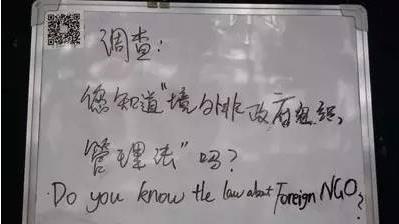 调查：
您知道“境外非政府组织
管理法”吗？
Do you know the law about Foreign NGO?